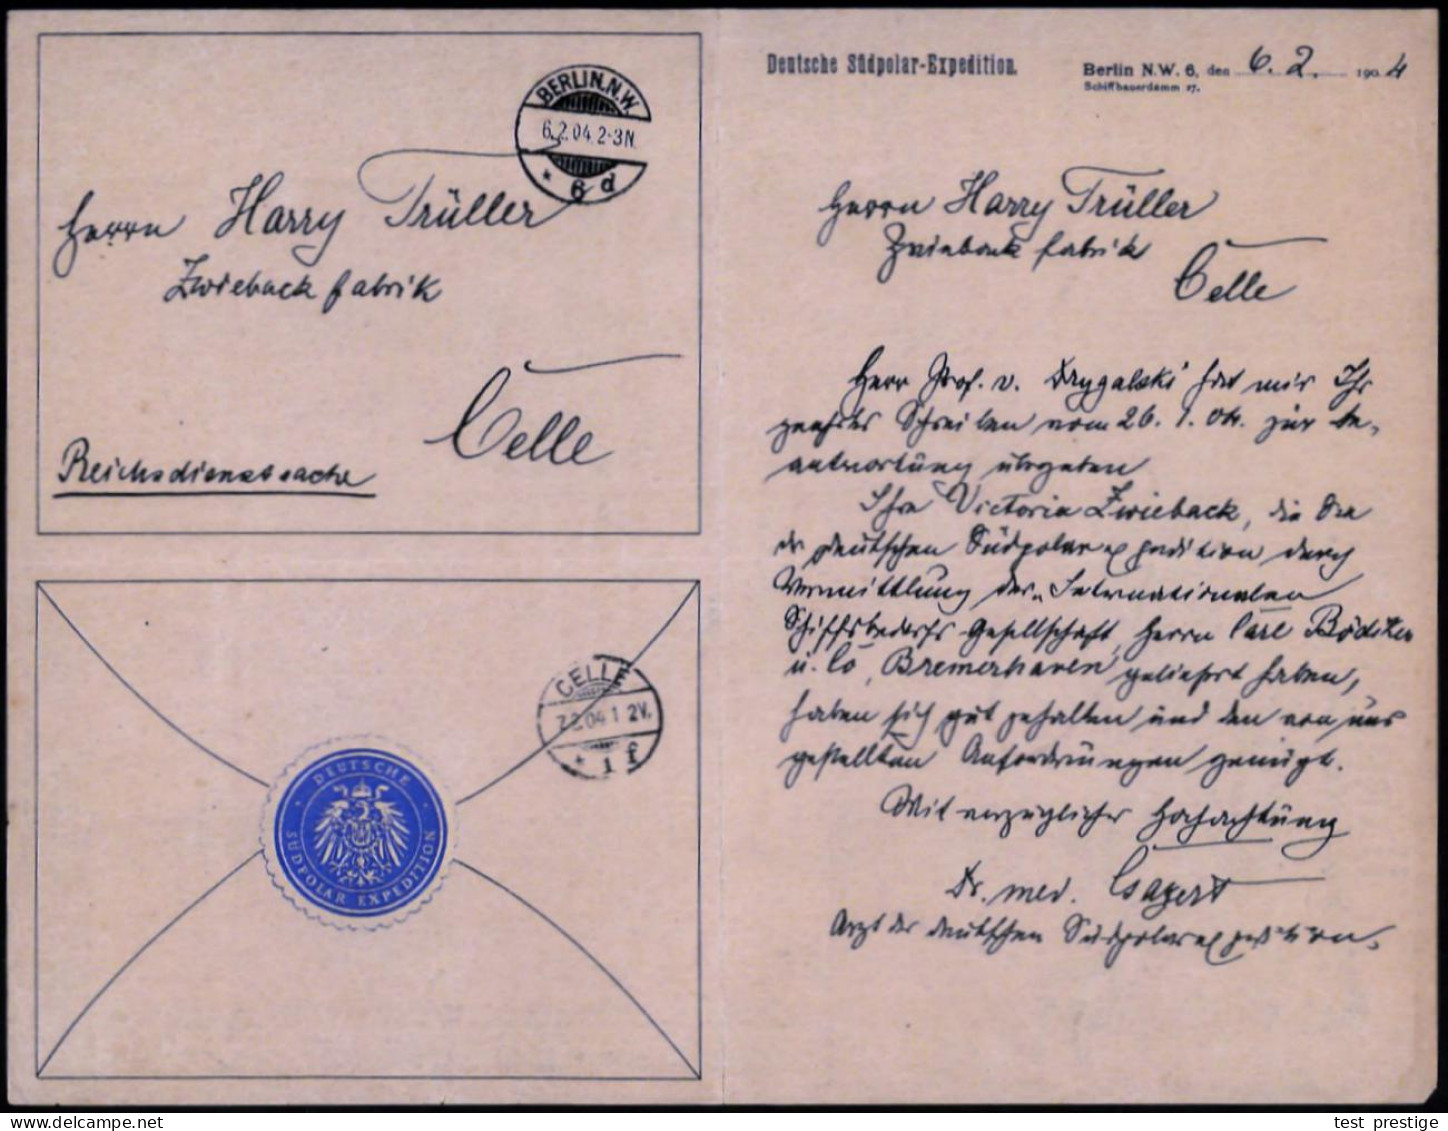 BERLIN.N.W.
6.2.04.2-3N.
* 6 d
Herrn Harry Trüller
Zwieback fabrik
Celle
Reichsdienstsache
CELLE
7.2.04.1 2V.
* 1 f
DEUTSCHE
SÜDPOLAR EXPEDITION
Deutsche Südpolar-Expedition.
Berlin N.W. 6, den 6. 2. 1904
Schiffbauerdamm 27.
Herrn Harry Trüller
Zwieback fabrik
Celle
Herr Prof. v. Drygalski hat mir Ihr
geehrtes Schreiben vom 26. 1. 04. zur Be-
antwortung übergeben
Ihre Victoria Zwieback, die Sie
der deutschen Südpolarexpedition durch
Vermittlung der „Internationalen
Schiffsbedarfs Gesellschaft, Herrn Carl Bödiker
u. Co, Bremerhaven geliefert haben,
haben sich gut gehalten und den von uns
gestellten Anforderungen genügt.
Mit vorzüglicher Hochachtung
Dr. med. Gazert
Arzt der deutschen Südpolarexpedition.
test_prestige